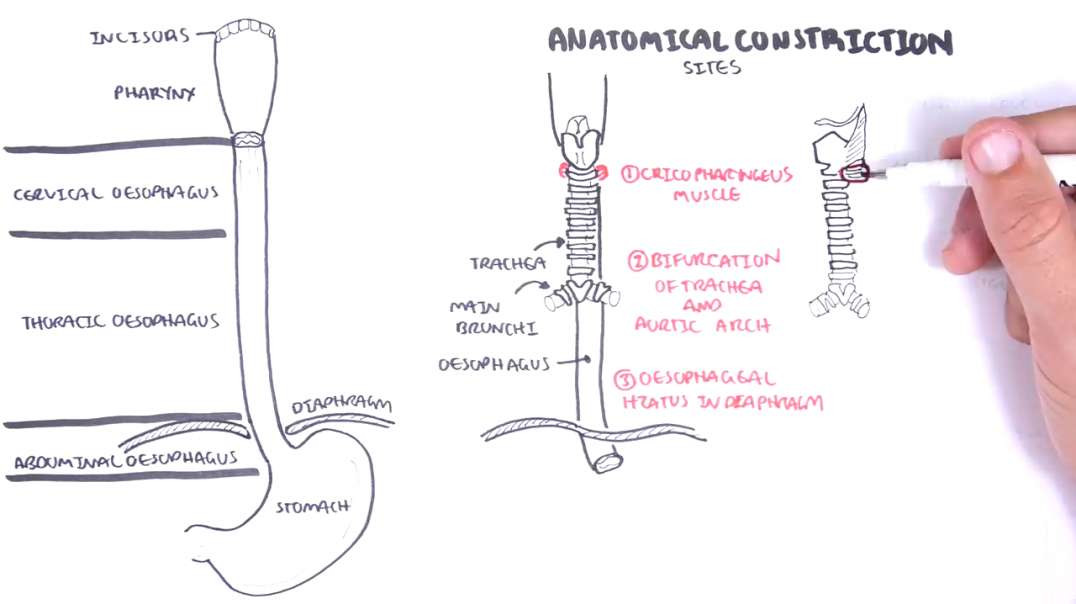 INCISORS
PHARYNX
CERVICAL OESOPHAGUS
THORACIC OESOPHAGUS
DIAPHRAGM
ABDUMINAL OESOPHAGUS
STOMACH
ANATOMICAL CONSTRICTION
SITES
① CRICOPHARINGEUS
MUSCLE
TRACHEA
② BIFURCATION
OF TRACHEA
AND
AURTIC ARCH
MAIN
BRUNCHI
OESOPHAGUS
③ OESOPHAGEAL
HIATUS IN DIAPHRAGM